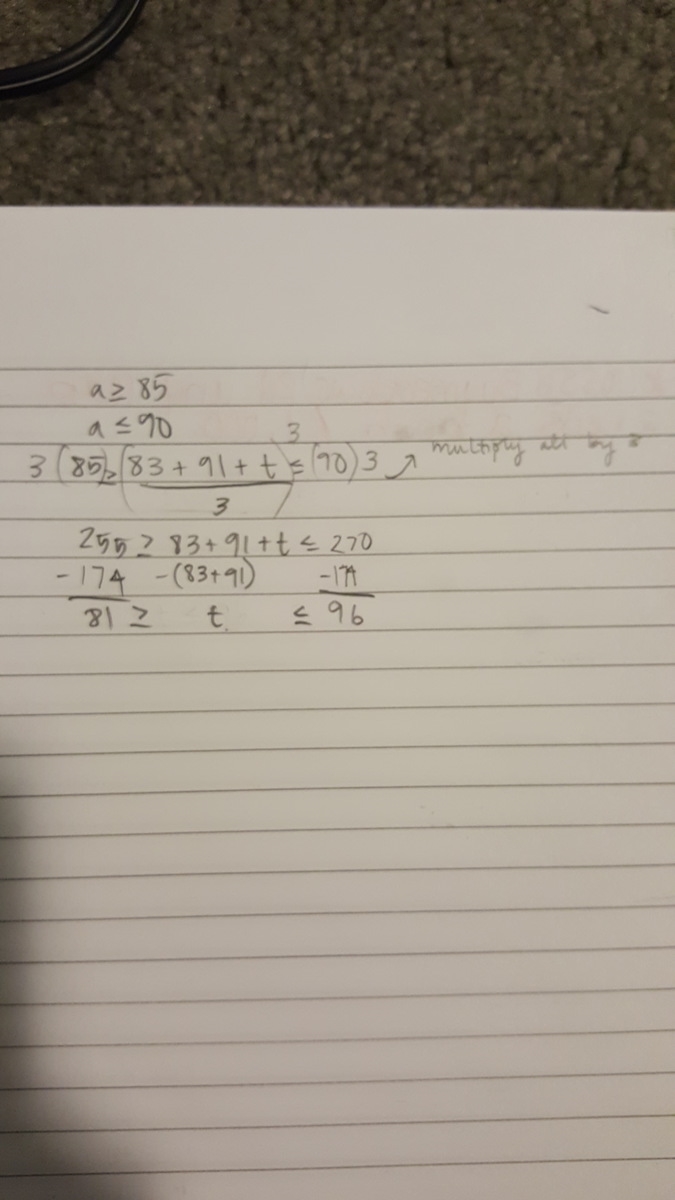 a ≥ 85
a ≤ 90
3
3 (85) ≥ (83 + 91 + t) ≤ (90) 3 ↗ multiply all by 3
3
255 ≥ 83 + 91 + t ≤ 270
- 174 - (83+91) - 174
81 ≥ t ≤ 96